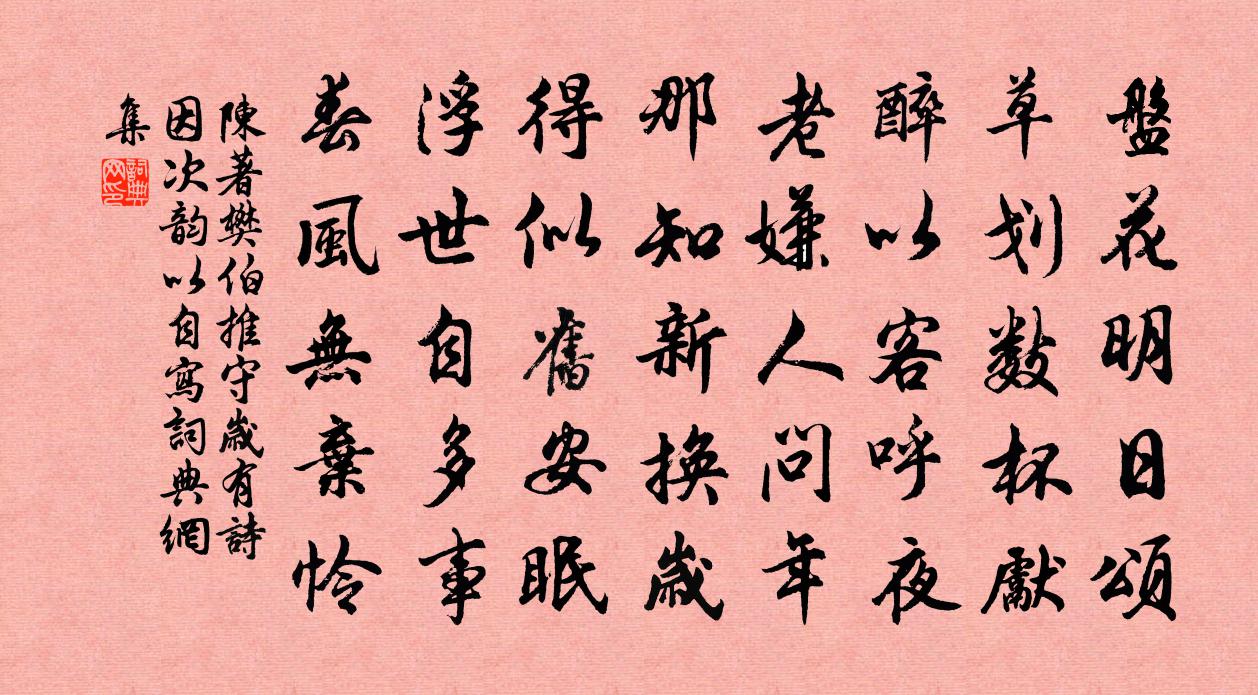 盤花明日頌
草划數杯獻
醉以客呼夜
老嫌人問年
那知新換歲
得似舊安眠
浮世自多事
春風無棄怜
陳著樊伯推守歲有詩
因次韵以自寫詞典網
集
詞典
网印